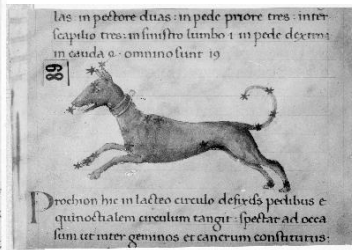 las: in pectore duas: in pede priore tres: inter
scapilio tres: in sinistro lumbo 1 in pede dextro
in cauda 2. omnino sunt 19
89
Prochion hic in lacteo circulo defixis pedibus e
quinoctialem circulum tangit: spectat ad occa
sum ut inter geminos et cancrum constitutus: